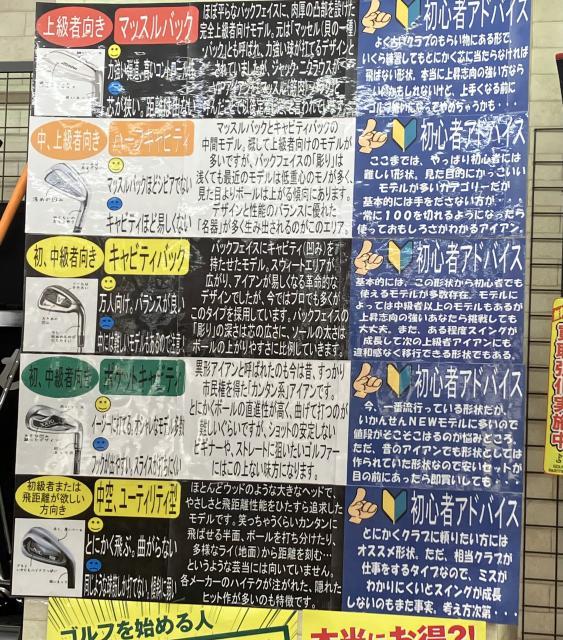 上級者向き
マッスルバック
ほぼ平らなバックフェイスに、肉厚の凸部を設けた
完全上級者向けモデル。元は「マッセル(貝の一種)
バック」とも呼ばれ、力強い球が打てるデザインと
されていましたが、ジャック・ニクラウスが
芯が狭い、距離は出ない
初心者アドバイス
よく古いクラブのもらい物にある形で、
いくら練習してもとにかく芯に当たらなければ
飛ばない形状。本当に上昇志向の強い方なら
いいかもしれないけど、上手くなる前に
ゴルフ嫌いになってやめちゃうかも・・・
中、上級者向き
ハーフキャビティ
マッスルバックほどシビアでない
キャビティほど易しくない
浅めの凹み
マッスルバックとキャビティバックの
中間モデル。概して上級者向けのモデルが
多いですが、バックフェイスの「彫り」は
浅くても最近のモデルは低重心のモノが多く
見た目よりボールは上がる傾向にあります。
デザインと性能のバランスに優れた
「名器」が多く生み出されるのがこのエリア。
初心者アドバイス
ここまでは、やっぱり初心者には
難しい形状。見た目的にかっこいい
モデルが多いカテゴリーだが
基本的には手をださない方が・・・
常に100を切れるようになったら
使っておもしろさがわかるアイアン。
初、中級者向き
キャビティバック
万人向け、バランスが良い
中には難しいモデルもあるので注意!
バックフェイスにキャビティ(凹み)を
持たせたモデル。スウィートエリアが
広がり、アイアンが易しくなる革命的な
デザインでしたが、今ではプロでも多くが
このタイプを採用しています。バックフェイスの
「彫り」の深さは芯の広さに、ソールの太さは
ボールの上がりやすさに比例していきます。
初心者アドバイス
基本的には、この形状から初心者でも
使えるモデルが多数存在。モデルに
よっては中級者以上のモデルもあるが
上昇志向の強いあなたなら挑戦しても
大丈夫。また、ある程度スイングが
成長して次の上級者アイアンにも
違和感なく移行できる形状でもある。
初、中級者向き
ポケットキャビティ
イージーに打てる、オシャレなモデル多数
フックが出やすい、スライスが打ちにくい
異形アイアンと呼ばれたのも今は昔、すっかり
市民権を得た「カンタン系」アイアンです。
とにかくボールの直進性が高く、曲げて打つのが
難しいぐらいですが、ショットの安定しない
ビギナーや、ストレートに狙いたいゴルファー
にはこの上ない味方になります。
初心者アドバイス
今、一番流行っている形状だが、
いかんせんNEWモデルに多いので
値段がそこそこはるのが悩みどころ。
ただ、昔のアイアンでも形状としては
作られていた形状なので安いセットが
目の前にあったら即買いしても
初級者または
飛距離が欲しい
方向き
中空、ユーティリティ型
とにかく飛ぶ、曲がらない
ほとんどウッドのような大きなヘッドで、
やさしさと飛距離性能をひたすら追求した
モデルです。笑っちゃうくらいカンタンに
飛ばせる半面、ボールを打ち分けたり、
多様なライ(地面)から距離を刻む…
というような芸当には向いていません。
各メーカーのハイテクが注がれた、隠れた
ヒット作が多いのも特徴です。
初心者アドバイス
とにかくクラブに頼りたい方には
オススメ形状。ただ、相当クラブが
仕事をするタイプなので、ミスが
わかりにくいとスイングが成長
しないのもまた事実。考え方次第・・・
買取強化実施中
ゴルフを始める人
本当にお得?!